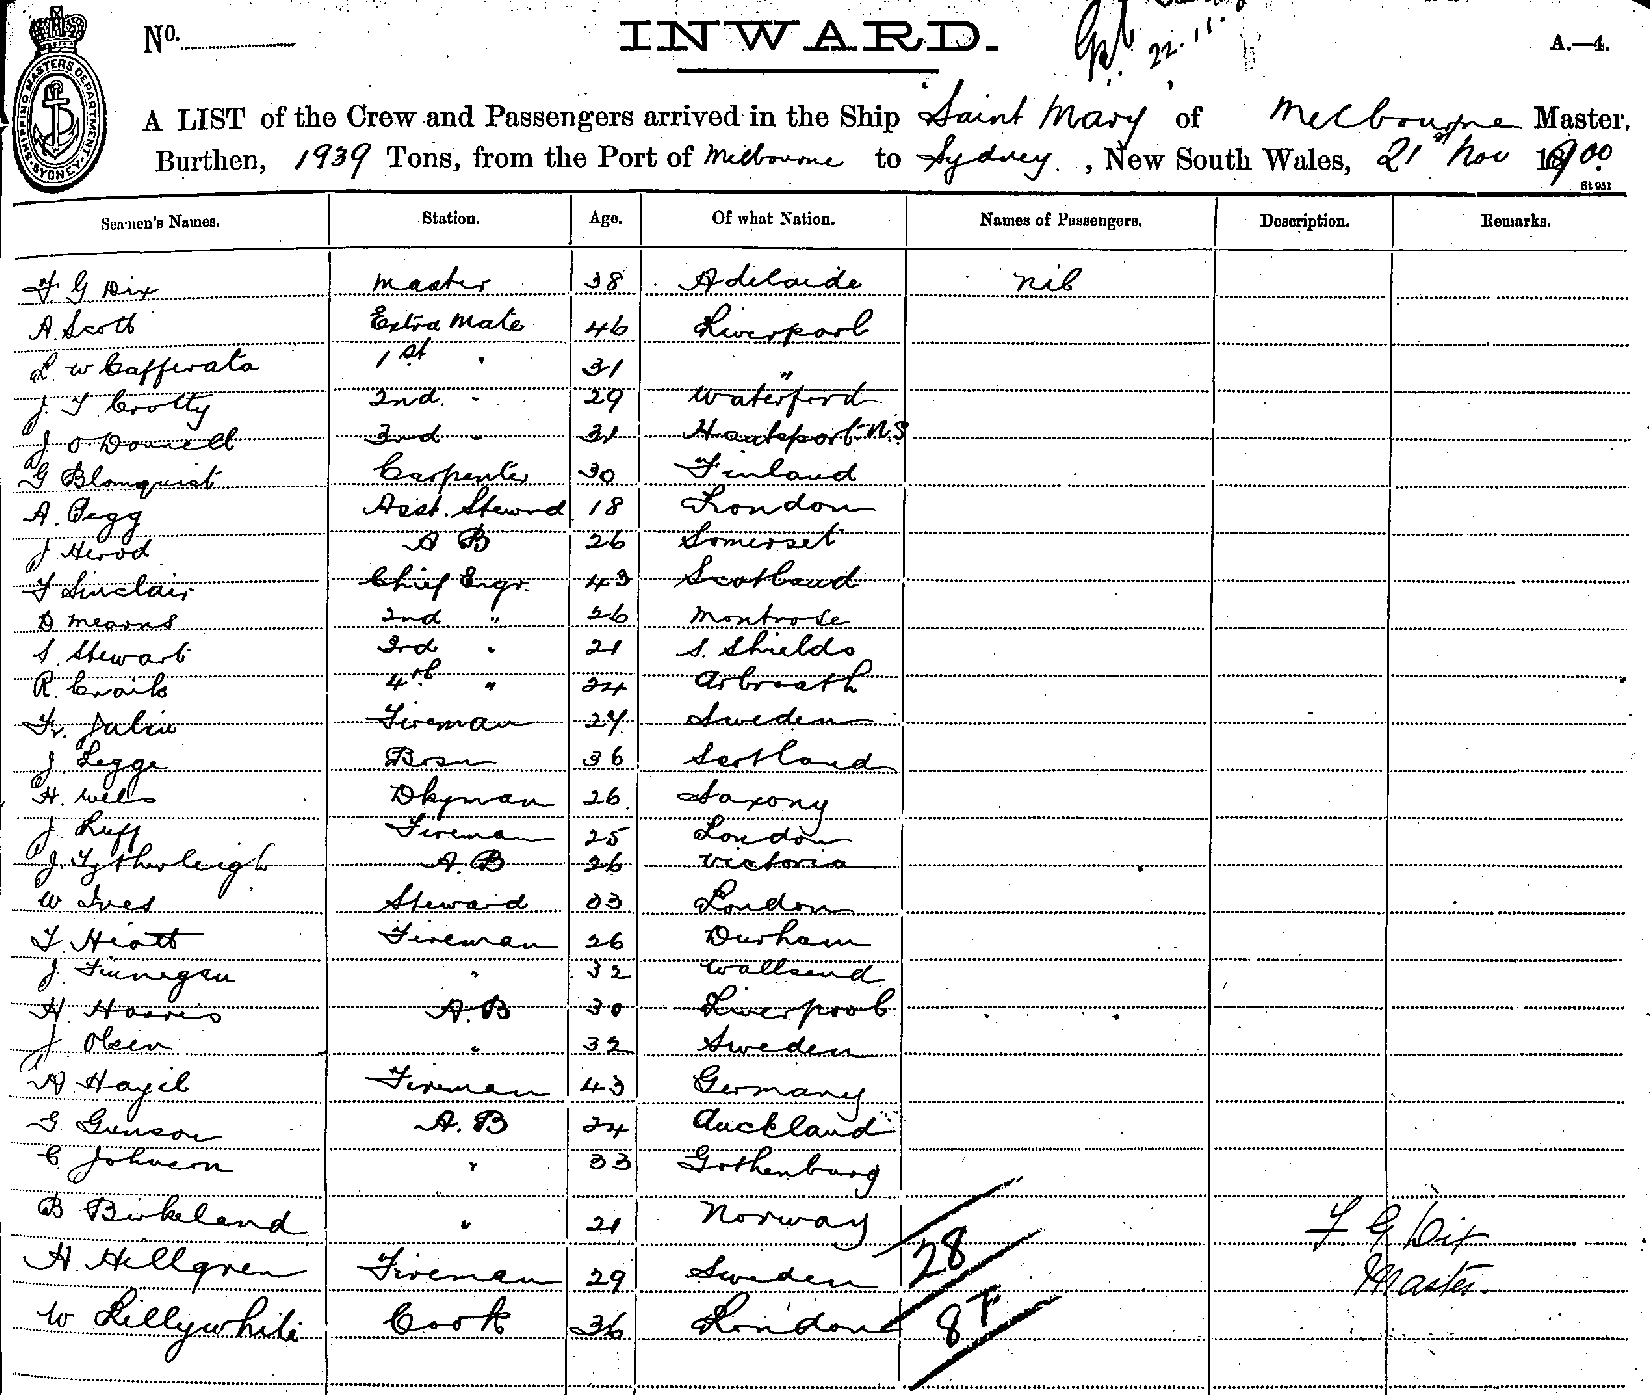 No.
INWARD.
22.11.
A.—4.
SHIPPING MASTERS DEPARTMENT SYDNEY
A LIST of the Crew and Passengers arrived in the Ship Saint Mary of Melbourne Master,
Burthen, 1939 Tons, from the Port of Melbourne to Sydney, New South Wales, 21st Nov 1900
Seamen's Names. Station. Age. Of what Nation. Names of Passengers. Description. Remarks.
F G Dix Master 38 Adelaide nil
A Scott Extra Mate 46 Liverpool
L W Cafferata 1st " 31 "
J. T Crotty 2nd " 29 Waterford
J O Donnell 3rd " 31 Hantsport N.S
G Blomquist Carpenter 30 Finland
A. Pegg Asst. Steward 18 London
J Herod A B 26 Somerset
F Sinclair Chief Engr. 43 Scotland
D Mearns 2nd " 26 Montrose
S. Stewart 3rd " 21 S. Shields
R. Craik 4th " 24 Arbroath
Fireman 27 Sweden
J Legge Bosn 36 Scotland
H. Dkyman 26 Saxony
J Ruff Fireman 25 London
J. Tytherleigh A. B 26 Victoria
W Ives Steward 33 London
T Hiott Fireman 26 Durham
J. Finnegan " 32 Wallsend
H. Harris A. B 30 Liverpool
J Olsen " 32 Sweden
A Hagel Fireman 43 Germany
G Gunson A. B 24 Auckland
C Johnson " 33 Gothenburg
B Birkeland " 21 Norway
F G Dix
H Hillgren Fireman 29 Sweden 28
Master.
W Lillywhite Cook 36 London 8 F